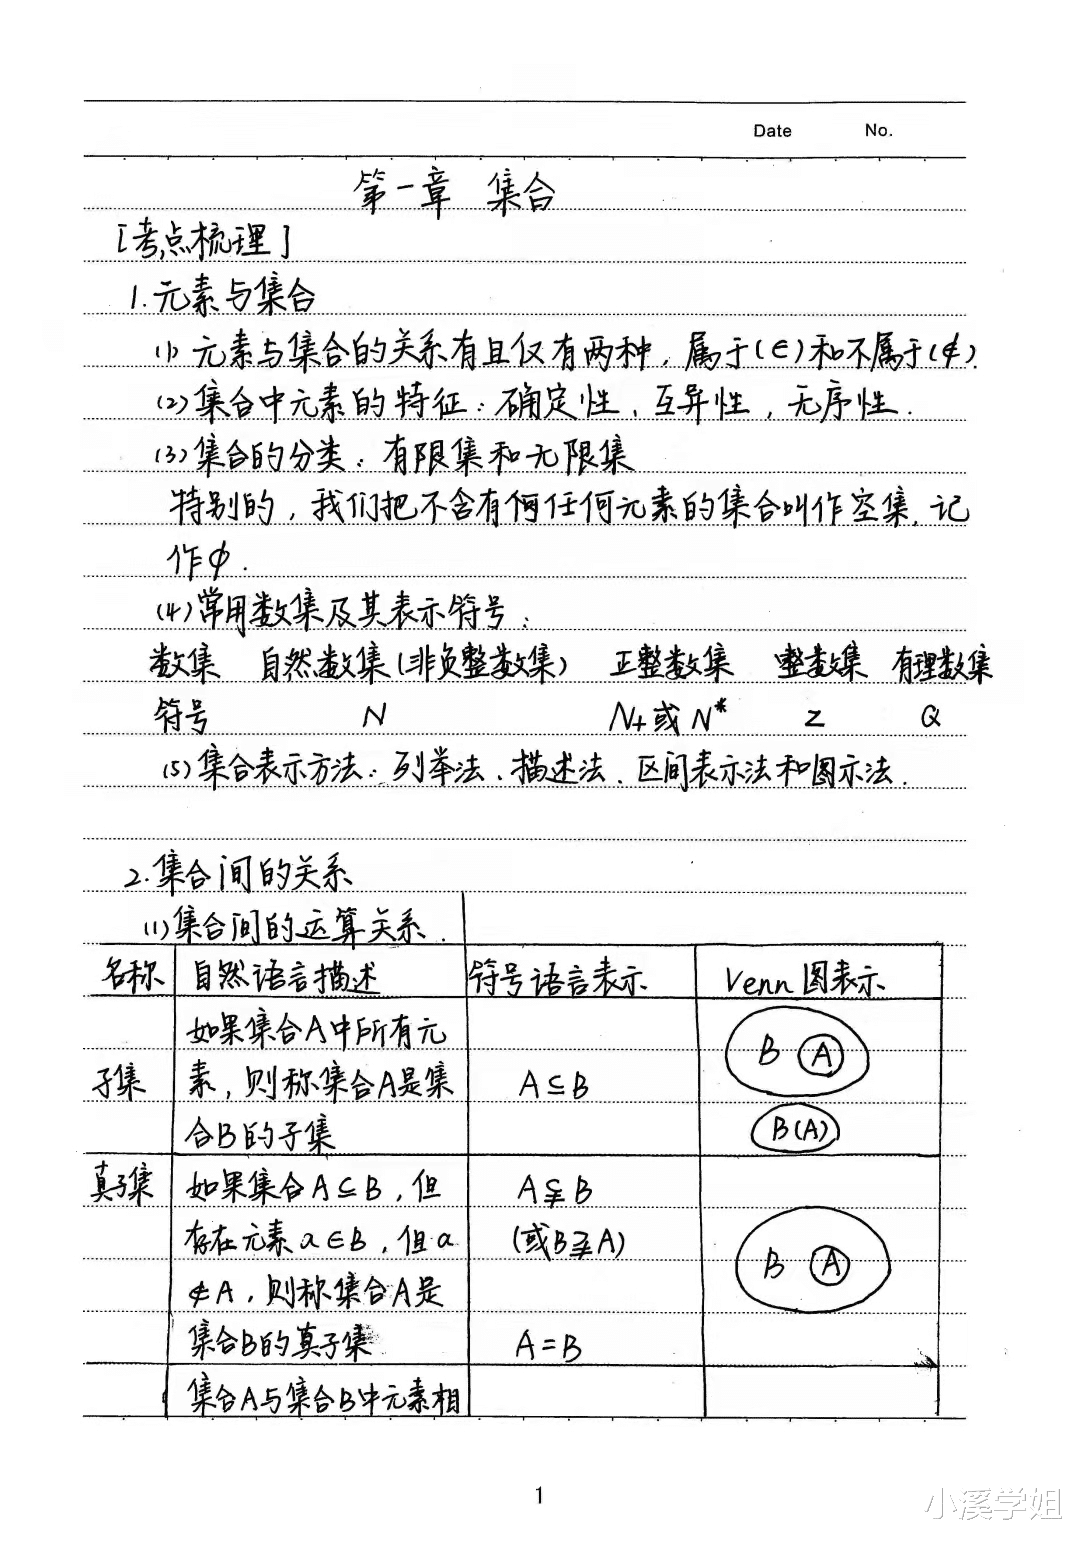 Date No.
第一章 集合
[考点梳理]
1.元素与集合
(1) 元素与集合的关系有且仅有两种,属于(∈)和不属于(∉).
(2)集合中元素的特征:确定性、互异性,无序性.
(3)集合的分类:有限集和无限集
特别的,我们把不含有何任何元素的集合叫作空集,记
作∅.
(4)常用数集及其表示符号:
数集 自然数集(非负整数集) 正整数集 整数集 有理数集
符号 N N+或N* Z Q
(5)集合表示方法:列举法、描述法、区间表示法和图示法.
2.集合间的关系
(1)集合间的运算关系.
名称 自然语言描述 符号语言表示 Venn图表示
如果集合A中所有元
素,则称集合A是集
合B的子集
子集
A⊆B
B A
B(A)
真子集
如果集合A⊆B,但
存在元素a∈B,但a
∉A,则称集合A是
集合B的真子集
A⫋B
(或B⫌A)
B A
A=B
集合A与集合B中元素相
1
小溪学姐